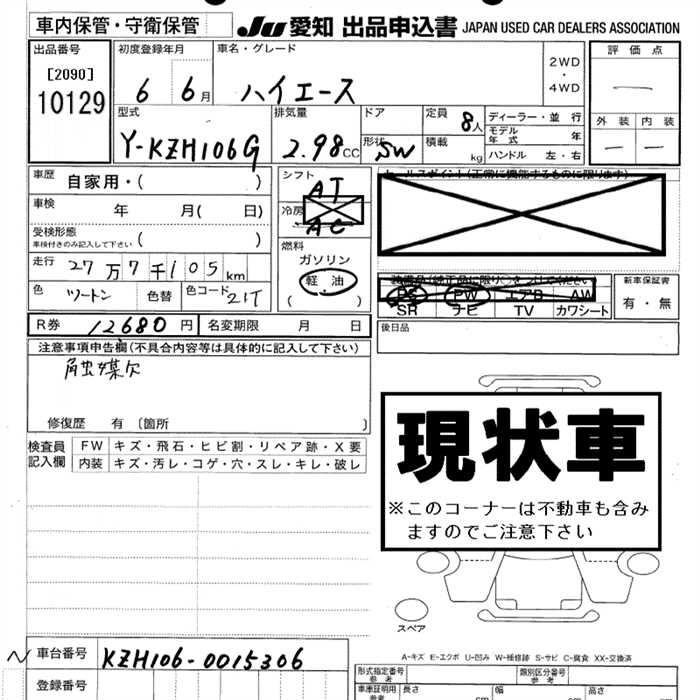 車内保管・守衛保管 JU 愛知 出品申込書 JAPAN USED CAR DEALERS ASSOCIATION
出品番号
[2090]
10129
初度登録年月
6 6月
車名・グレード
ハイエース
2WD
・
4WD
評価点
—
外装 内装
— —
型式
Y-KZH106G
排気量
2.98CC
ドア
形状
SW
定員
8人
積載
kg
ディーラー・並行
モデル年式 年
ハンドル 左・右
車歴 自家用・( )
車検 年 月( 日)
受検形態
車検付きのみ記入して下さい ( )
走行 27万7千105km
色 ツートン 色替 色コード 21T
シフト
AT
冷房
AC
燃料
ガソリン
軽油
( )
セールスポイント(正常に機能するものに限ります)
装備品(純正品に限り○をつけてください)
PS PW エアB AW
SR ナビ TV カワシート
新車保証書
有・無
R券 12680円 名変期限 月 日
後日品
注意事項申告欄(不具合内容等は具体的に記入して下さい)
修復歴 有 〔箇所 〕
検査員記入欄
FW キズ・飛石・ヒビ割・リペア跡・X要
内装 キズ・汚レ・コゲ・穴・スレ・キレ・破レ
現状車
※このコーナーは不動車も含み
ますのでご注意下さい
スペア
A-キズ E-エクボ U-凹み W-補修跡 S-サビ C-腐食 XX-交換済
車台番号 KZH106-0015306
登録番号
形式指定番号 類別区分番号
車庫証明用 長さ cm 幅 cm 高さ cm